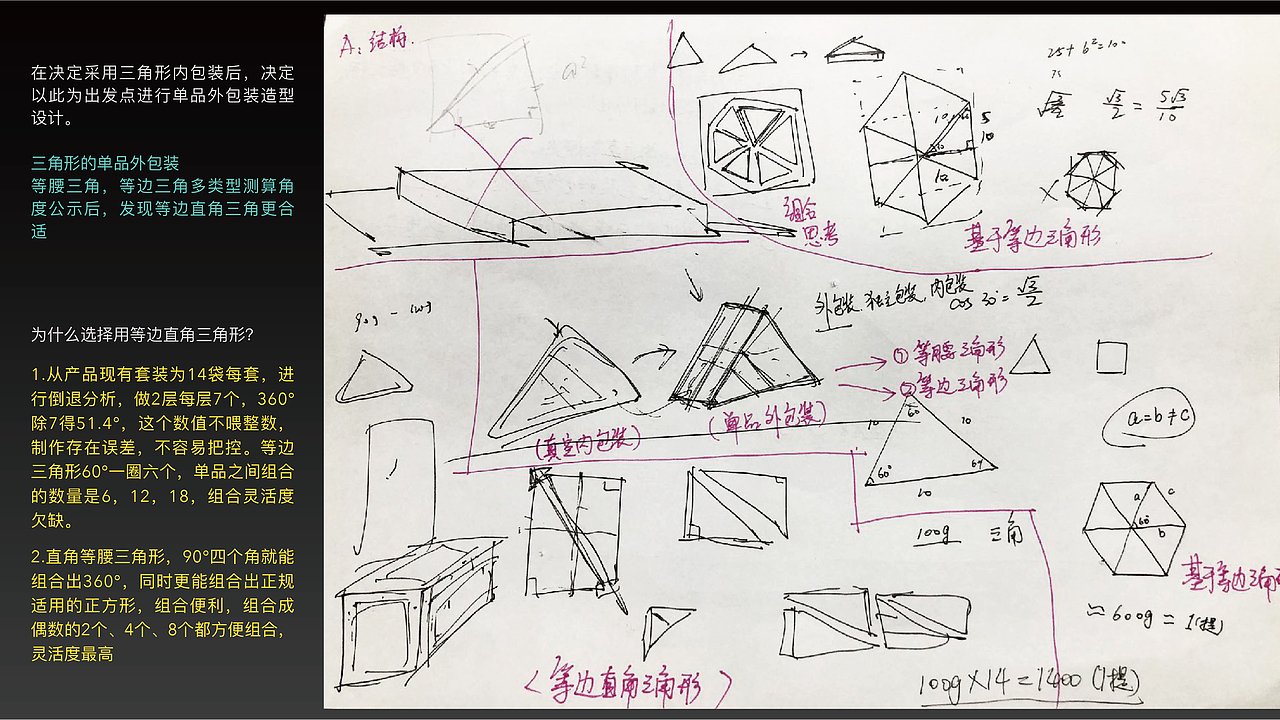 在决定采用三角形内包装后，决定
以此为出发点进行单品外包装造型
设计。
三角形的单品外包装
等腰三角，等边三角多类型测算角
度公示后，发现等边直角三角更合
适
为什么选择用等边直角三角形？
1.从产品现有套装为14袋每套，进
行倒退分析，做2层每层7个，360°
除7得51.4°，这个数值不喂整数，
制作存在误差，不容易把控。等边
三角形60°一圈六个，单品之间组合
的数量是6，12，18，组合灵活度
欠缺。
2.直角等腰三角形，90°四个角就能
组合出360°，同时更能组合出正规
适用的正方形，组合便利，组合成
偶数的2个、4个、8个都方便组合，
灵活度最高
A：结构.
组合
思考
5
10
10
基于等边三角形
√3/2 = 5√3/10
外包装.独立包装.内包装
cos 30° = √3/2
① 等腰三角形
② 等边三角形
(真空内包装)
(单品外包装)
60
10
10
60°
10
a=b≠c
a
c
60°
b
100g 三角
基于等边三角形
≈ 600g = 1(提)
〈等边直角三角形〉
100g×14=1400 (1提)